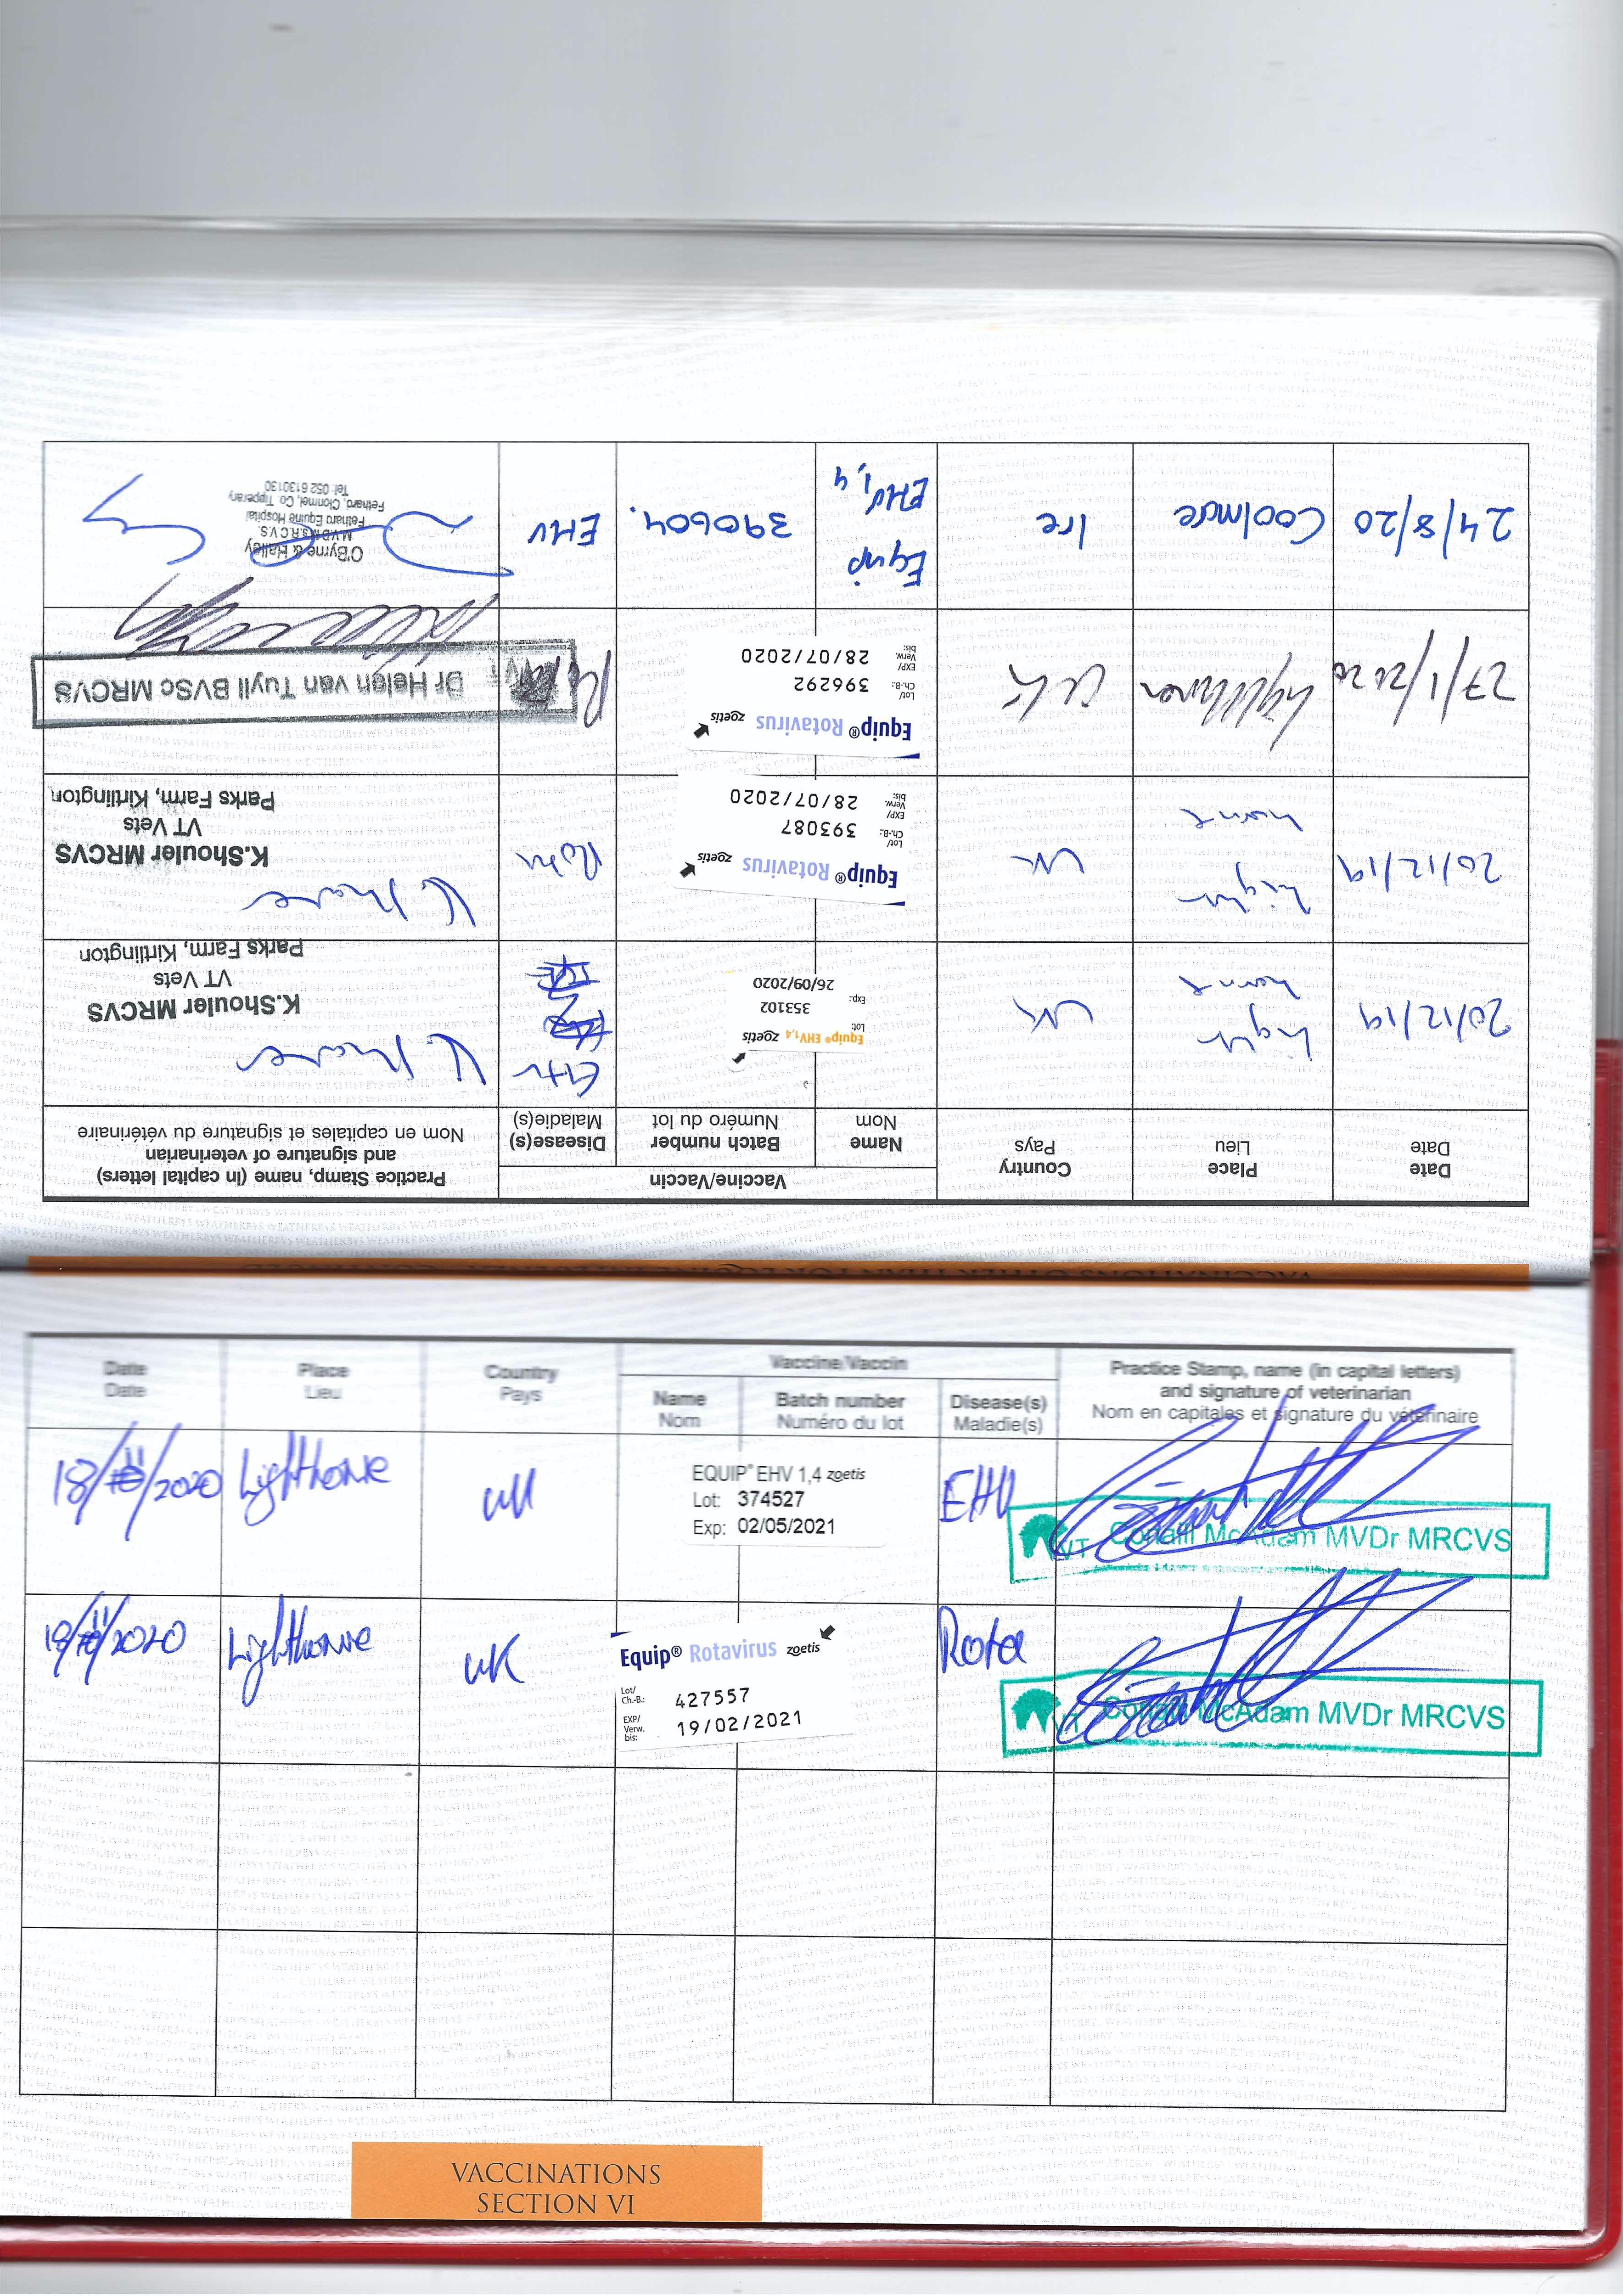 VACCINATIONS OTHER THAN FOR EQUINE INFLUENZA - CONTINUED
Date
Date
Place
Lieu
Country
Pays
Vaccine/Vaccin
Name
Nom
Batch number
Numéro du lot
Disease(s)
Maladie(s)
Practice Stamp, name (in capital letters)
and signature of veterinarian
Nom en capitales et signature du vétérinaire
20/12/19
UK
Equip® EHV1,4 zoetis
Lot: 353102
Exp: 26/09/2020
EHV
K.Shouler MRCVS
VT Vets
Parks Farm, Kirtlington
20/12/19
UK
Equip® Rotavirus zoetis
Lot/
Ch.-B.: 393087
EXP/
Verw.
bis: 28/07/2020
Rota
K.Shouler MRCVS
VT Vets
Parks Farm, Kirtlington
27/1/2020
Lighthorne
UK
Equip® Rotavirus zoetis
Lot/
Ch.-B.: 396292
EXP/
Verw.
bis: 28/07/2020
Dr Helen van Tuyll BVSc MRCVS
24/8/20
Coolmore
Ire
Equip
EHV1,4
390604.
EHV
O'Byrne & Halley
M.V.B. M.R.C.V.S
Fethard Equine Hospital
Fethard, Clonmel, Co. Tipperary
Tel: 052 6130130
Date
Date
Place
Lieu
Country
Pays
Vaccine/Vaccin
Name
Nom
Batch number
Numéro du lot
Disease(s)
Maladie(s)
Practice Stamp, name (in capital letters)
and signature of veterinarian
Nom en capitales et signature du vétérinaire
18/11/2020
Lighthorne
UK
EQUIP® EHV 1,4 zoetis
Lot: 374527
Exp: 02/05/2021
EHV
VT Conaill McAdam MVDr MRCVS
19/11/2020
Lighthorne
UK
Equip® Rotavirus zoetis
Lot/
Ch.-B.: 427557
EXP/
Verw.
bis: 19/02/2021
Rota
VT Conaill McAdam MVDr MRCVS
VACCINATIONS
SECTION VI